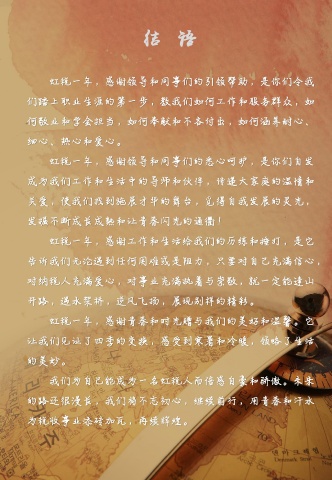 结 语
虹税一年，感谢领导和同事们的引领帮助，是你们令我
们踏上职业生涯的第一步，教我们如何工作和服务群众，如
何敬业和学会担当，如何奉献和不吝付出，如何涵养耐心、
细心、热心和爱心。
虹税一年，感谢领导和同事们的悉心呵护，是你们自发
成为我们工作和生活中的导师和伙伴，传递大家庭的温情和
关爱，使我们找到施展才华的舞台，觅得自我发展的灵光，
发掘不断成长成熟和让青春闪光的通衢！
虹税一年，感谢工作和生活给我们的历练和捶打，是它
告诉我们无论遇到任何困难或是阻力，只要对自己充满信心，
对纳税人充满爱心，对事业充满执着与荣敬，就一定能逢山
开路，遇水架桥，逆风飞扬，展现别样的精彩。
虹税一年，感谢青春和时光赠与我们的美好和温馨。它
让我们见证了四季的变换，感受到寒暑和冷暖，领略了生活
的美妙。
我们为自己能成为一名虹税人而倍感自豪和骄傲。未来
的路还很漫长，我们将不忘初心，继续前行，用青春和汗水
为税收事业添砖加瓦，再续辉煌。